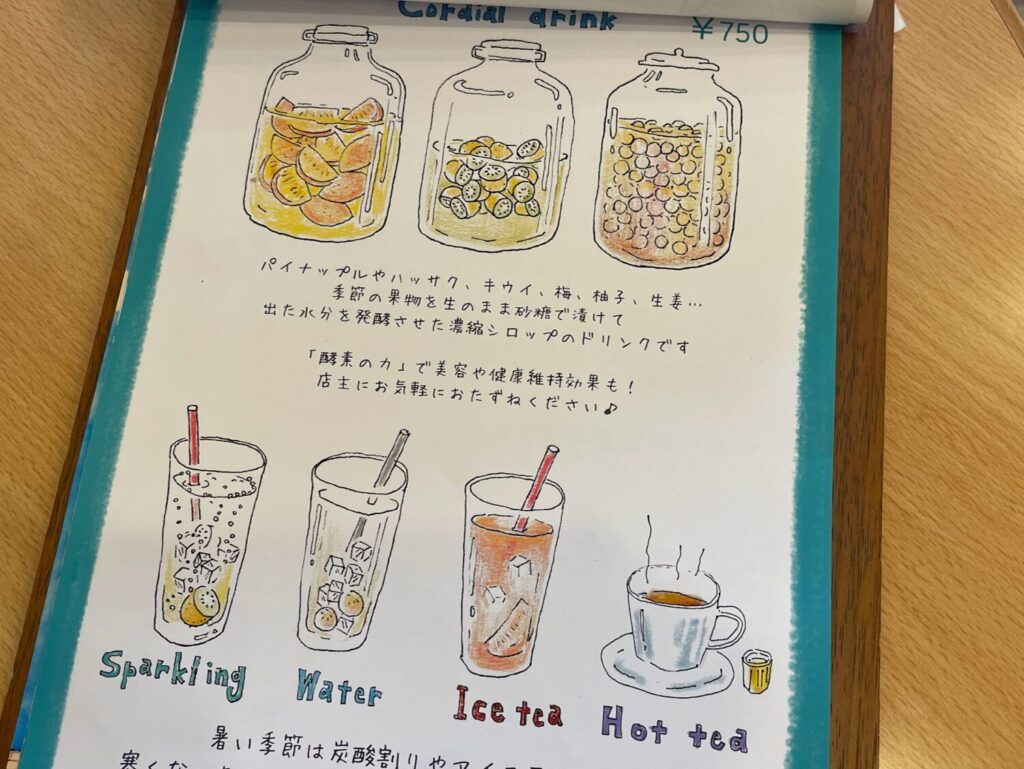 Cordial drink
¥750
パイナップルやハッサク、キウイ、梅、柚子、生姜…
季節の果物を生のまま砂糖で漬けて
出た水分を発酵させた濃縮シロップのドリンクです
「酵素の力」で美容や健康維持効果も!
店主にお気軽におたずねください♪
Sparkling
Water
Ice tea
Hot tea
暑い季節は炭酸割りやアイス
寒くな